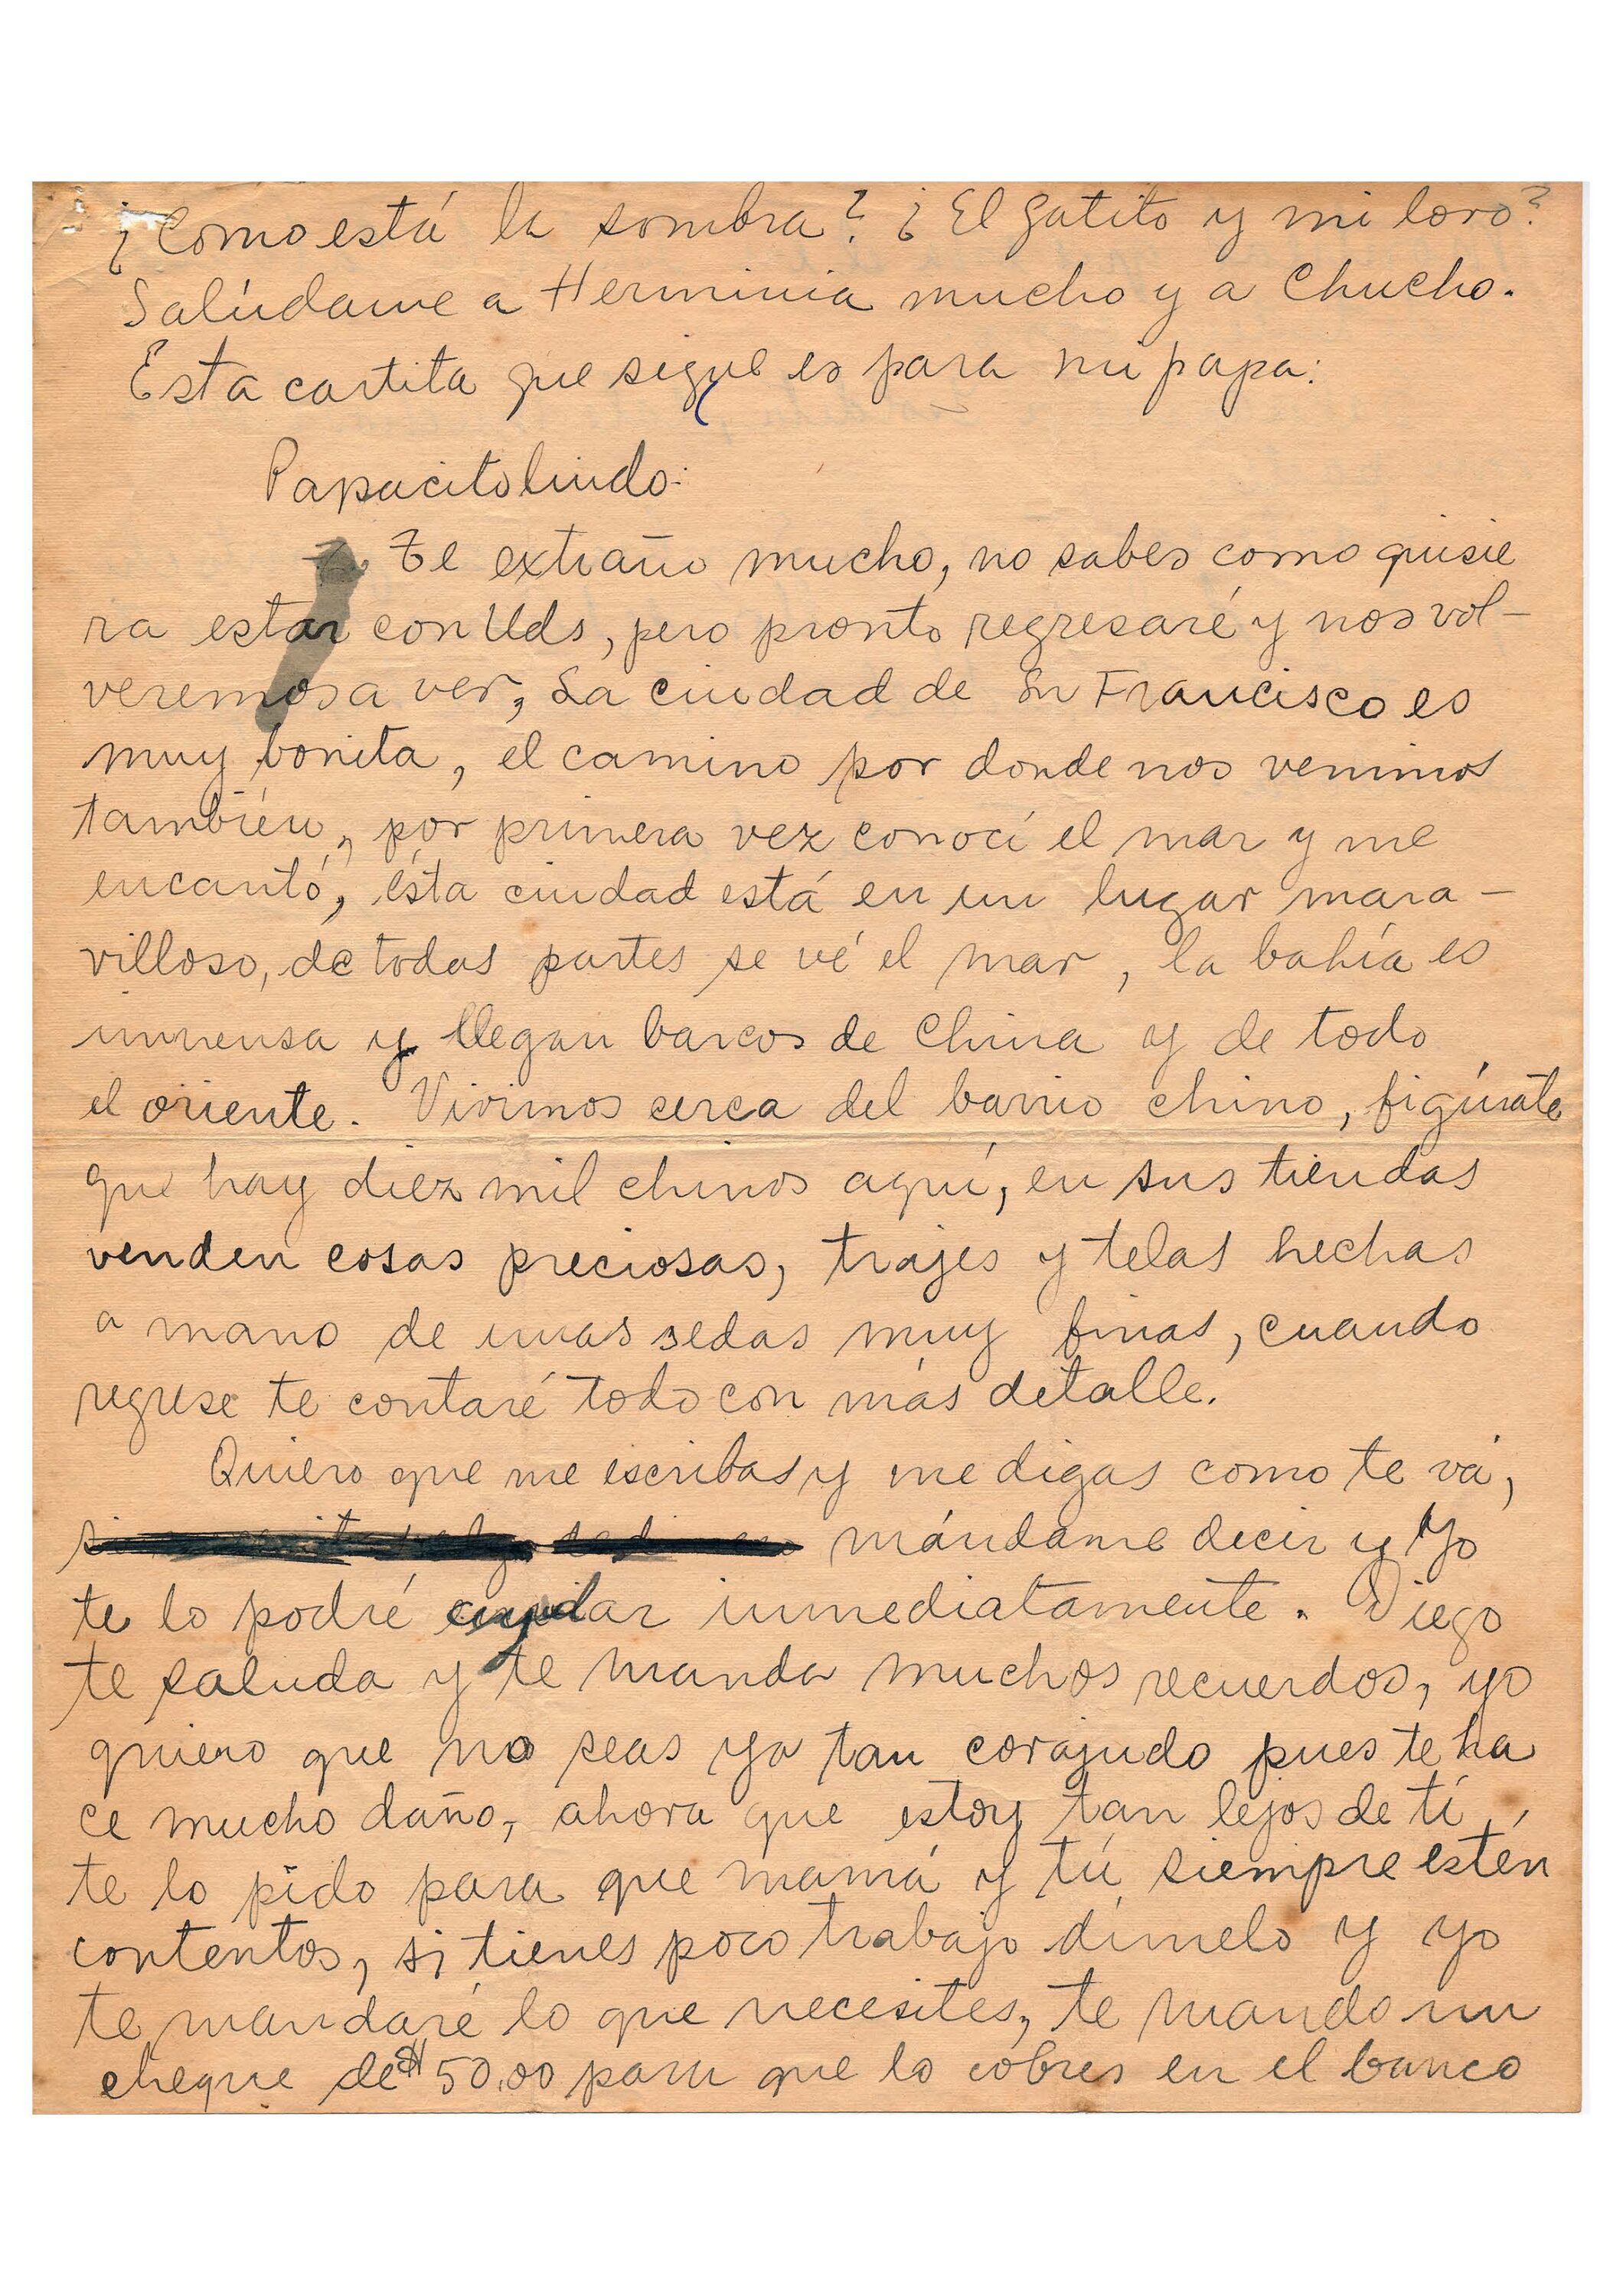 ¿Como está la sombra? ¿El gatito y mi loro?
Salúdame a Herminia mucho y a Chucho.
Esta cartita que sigue es para mi papa:
Papacito lindo:
Te extraño mucho, no sabes como quisie
ra estar con Uds, pero pronto regresaré y nos vol-
veremos a ver, La ciudad de Sn Francisco es
muy bonita, el camino por donde nos venimos
también, por primera vez conocí el mar y me
encantó, ésta ciudad está en un lugar mara-
villoso, de todas partes se vé el mar, la bahía es
inmensa y llegan barcos de China y de todo
el oriente. Vivimos cerca del barrio chino, figúrate
que hay diez mil chinos aquí, en sus tiendas
venden cosas preciosas, trajes y telas hechas
a mano de unas sedas muy finas, cuando
regrese te contaré todo con más detalle.
Quiero que me escribas y me digas como te vá,
mándame decir y yo
te lo podré inmediatamente. Diego
te saluda y te manda muchos recuerdos, yo
quiero que no seas ya tan corajudo pues te ha
ce mucho daño, ahora que estoy tan lejos de tí
te lo pido para que mamá y tú siempre estén
contentos, si tienes poco trabajo dímelo y yo
te mandaré lo que necesites, te mando un
cheque de $50.00 para que lo cobres en el banco